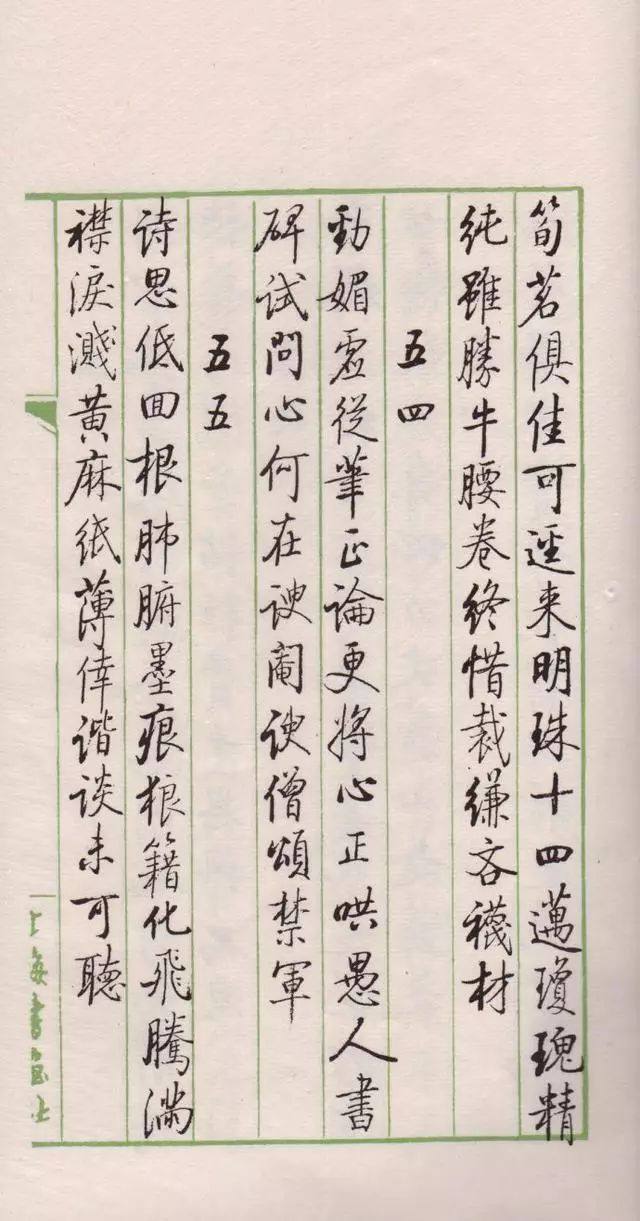 筍茗俱佳可逕来明珠十四邁瓊瑰精
纯雖勝牛腰卷终惜裁缣吝襪材
五四
勁媚虚従筆正論更将心正哄愚人書
碑试問心何在谀阉谀僧頌禁軍
五五
诗思低回根肺腑墨痕狼籍化飛騰满
襟淚濺黄麻纸薄倖谐谈未可聽
上海書畫社